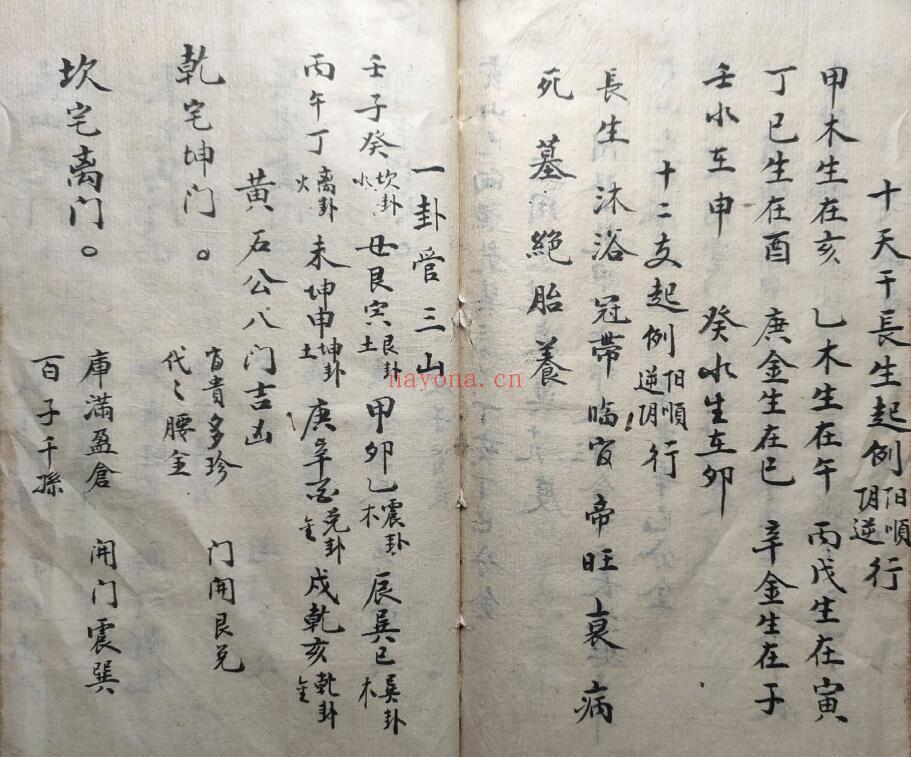 十天干長生起例阳順阴逆行
甲木生在亥 乙木生在午 丙戊生在寅
丁巳生在酉 庚金生在巳 辛金生在子
壬水生申 癸水生在卯
十二支起例阳順逆阴行
長生 沐浴 冠帶 臨官 帝旺 衰 病
死 墓 絕 胎 養
一卦管三山
壬子癸坎卦水 丑艮寅艮卦土 甲卯乙震卦木 辰巽巳巽卦木
丙午丁离卦火 未坤申坤卦土 庚辛酉兑卦金 戍乾亥乾卦金
黄石公八门吉凶
乾宅坤门。 富貴多珍 门開艮兑
代々腰金
坎宅离门。 庫滿盈倉 開门震巽
百子千孫
nayona.cn